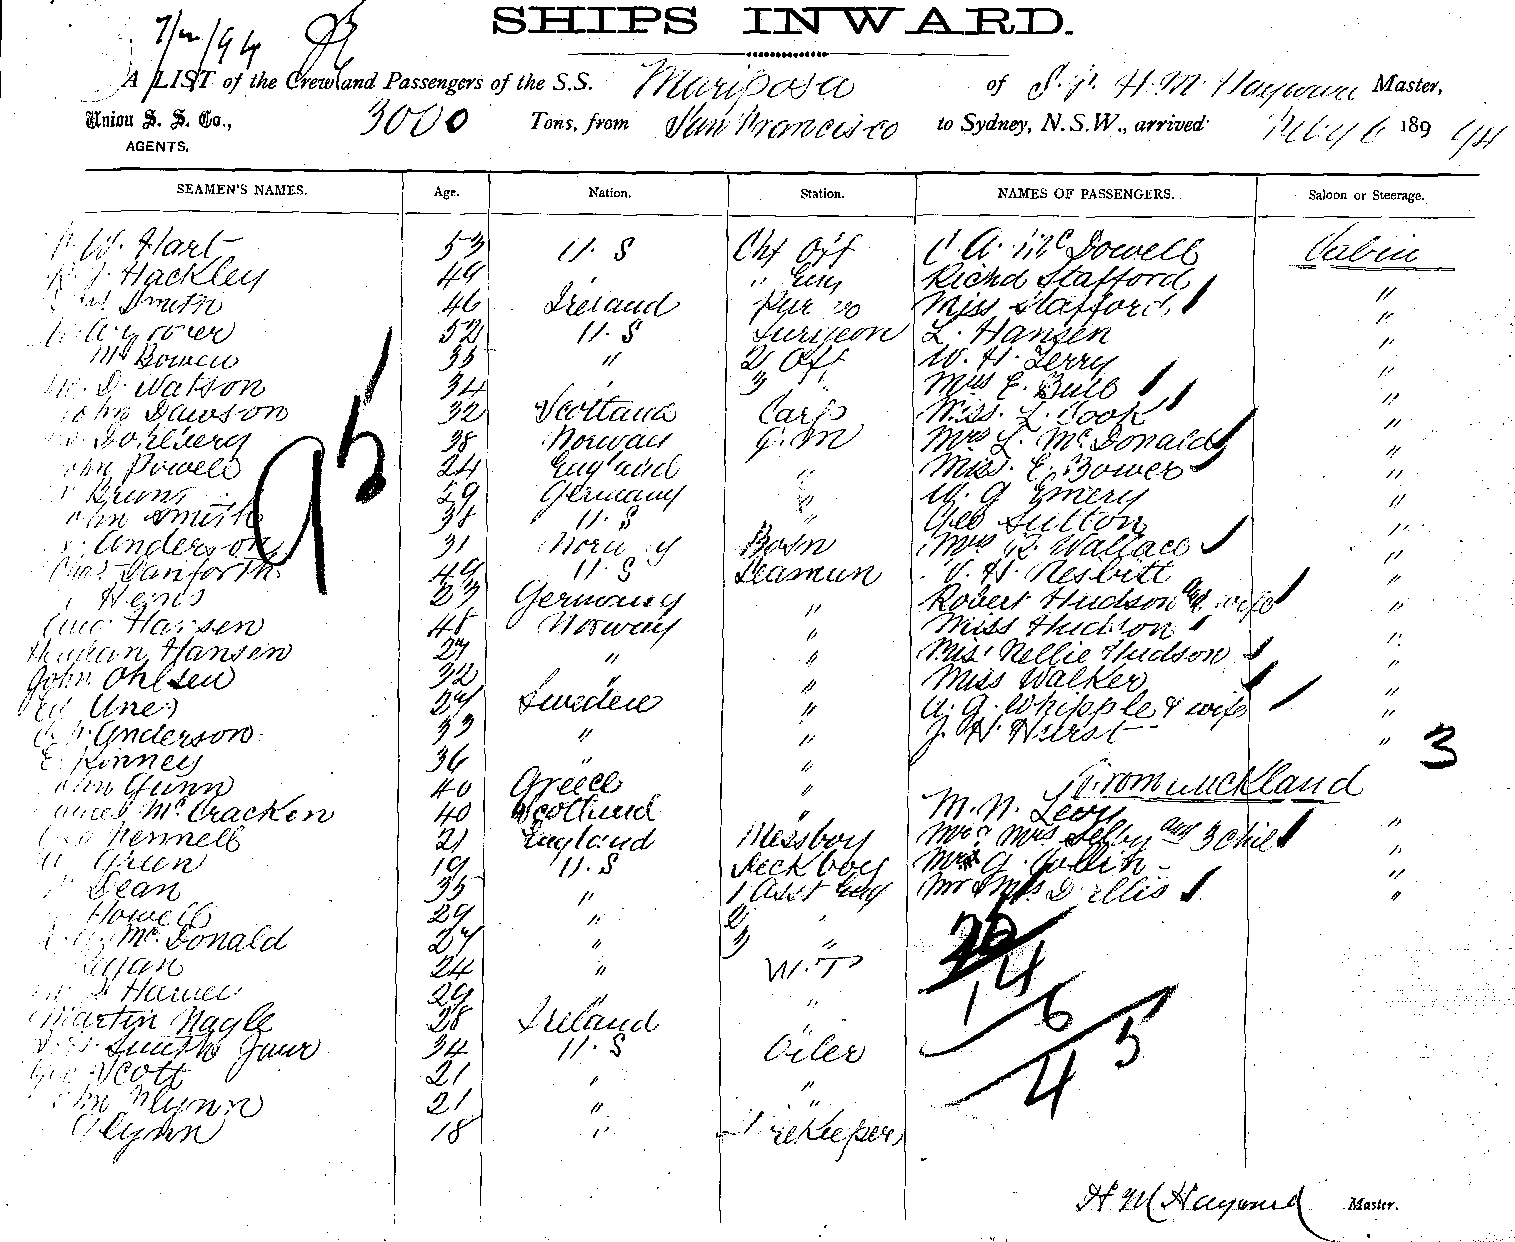 SHIPS INWARD.
7/2/94
A LIST of the Crew and Passengers of the S.S. Mariposa of S. Fr. H. M. Hayward Master,
Union S. S. Co., 3000 Tons, from San Francisco to Sydney, N.S.W., arrived Feby 6 189 94
AGENTS.
SEAMEN'S NAMES. Age. Nation. Station. NAMES OF PASSENGERS. Saloon or Steerage.
W. Hart 53 U. S Chf Off C. A. McDowell Cabin
Hackley 49 " " Eng Richd Stafford "
Smith 46 Ireland Purser Miss Stafford "
52 U. S Surgeon L. Hansen "
Mc Bowen 35 " 2 Off W. H. Terry "
D. Watson 34 " 3 " Miss E. Bull "
John Dawson 32 Scotland Carp Miss. L. Cook "
Dahlberg 38 Norway Q. M Mrs L. McDonald "
John Powell 24 England " Miss. E. Bower "
Bruns 29 Germany " W. G Emery "
John Smith 38 U. S " Geo Sutton "
Anderson 31 Norway Bosn Mrs R. Wallace "
Chas Danforth 49 U. S Seaman V. H. Nesbitt "
Heins 23 Germany " Robert Hudson and wife "
Hansen 48 Norway " Miss Hudson "
Hansen 27 " " Miss Nellie Hudson "
John Ohlsen 32 " " Miss Walker "
27 Sweden " A. G. Whipple & wife "
Anderson 33 " " J. H. Hurst " 3
E. Kinney 36 " "
John Gunn 40 Greece " From Auckland
James McCracken 40 Scotland M. N. Levy
Pennell 21 England Messboy Mr & Mrs Selby and 3 chil "
Green 19 U. S Deck boy Mr G. "
Dean 35 " 1 Asst Eng Mr & Mrs D. Ellis "
Howell 29 " 2 " "
McDonald 27 " 3 "
Ryan 24 " W. T
Harvey 29 " "
Martin Nagle 28 Ireland
Smith Junr 34 U. S Oiler
Geo Scott 21 " "
John Flynn 21 " "
Flynn 18 " Storekeeper
95
26
4
1 6
4 5
H M Hayward Master.